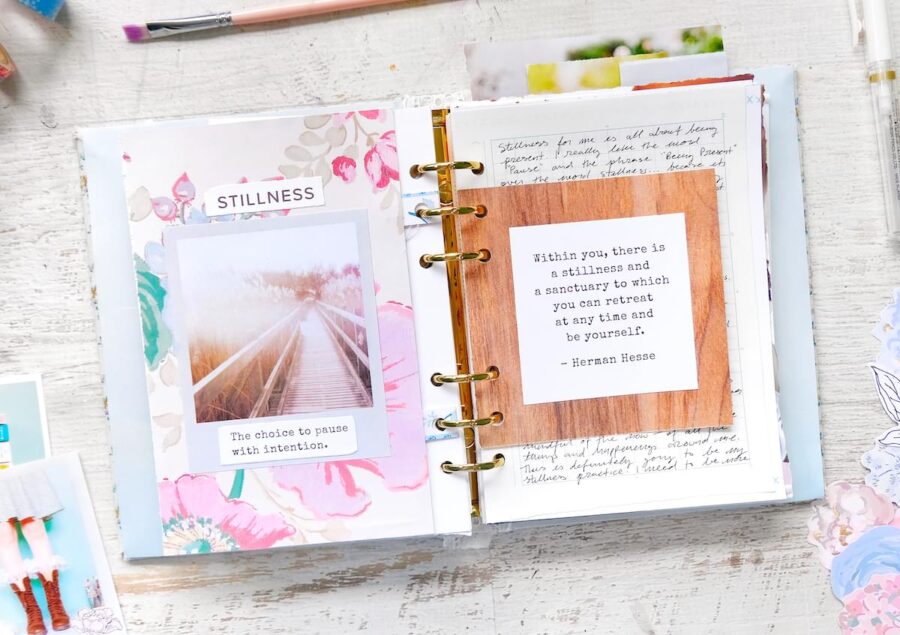 STILLNESS
The choice to pause
with intention.
Stillness for me is all about being
present. I really love the word
"Pause" and the phrase "Being Present"
over the word stillness... because its
Within you, there is
a stillness and
a sanctuary to which
you can retreat
at any time and
be yourself.
– Herman Hesse
mindful of the "now" of all
things and happenings around me.
This is definitely going to be my
stillness practice! I need to be more